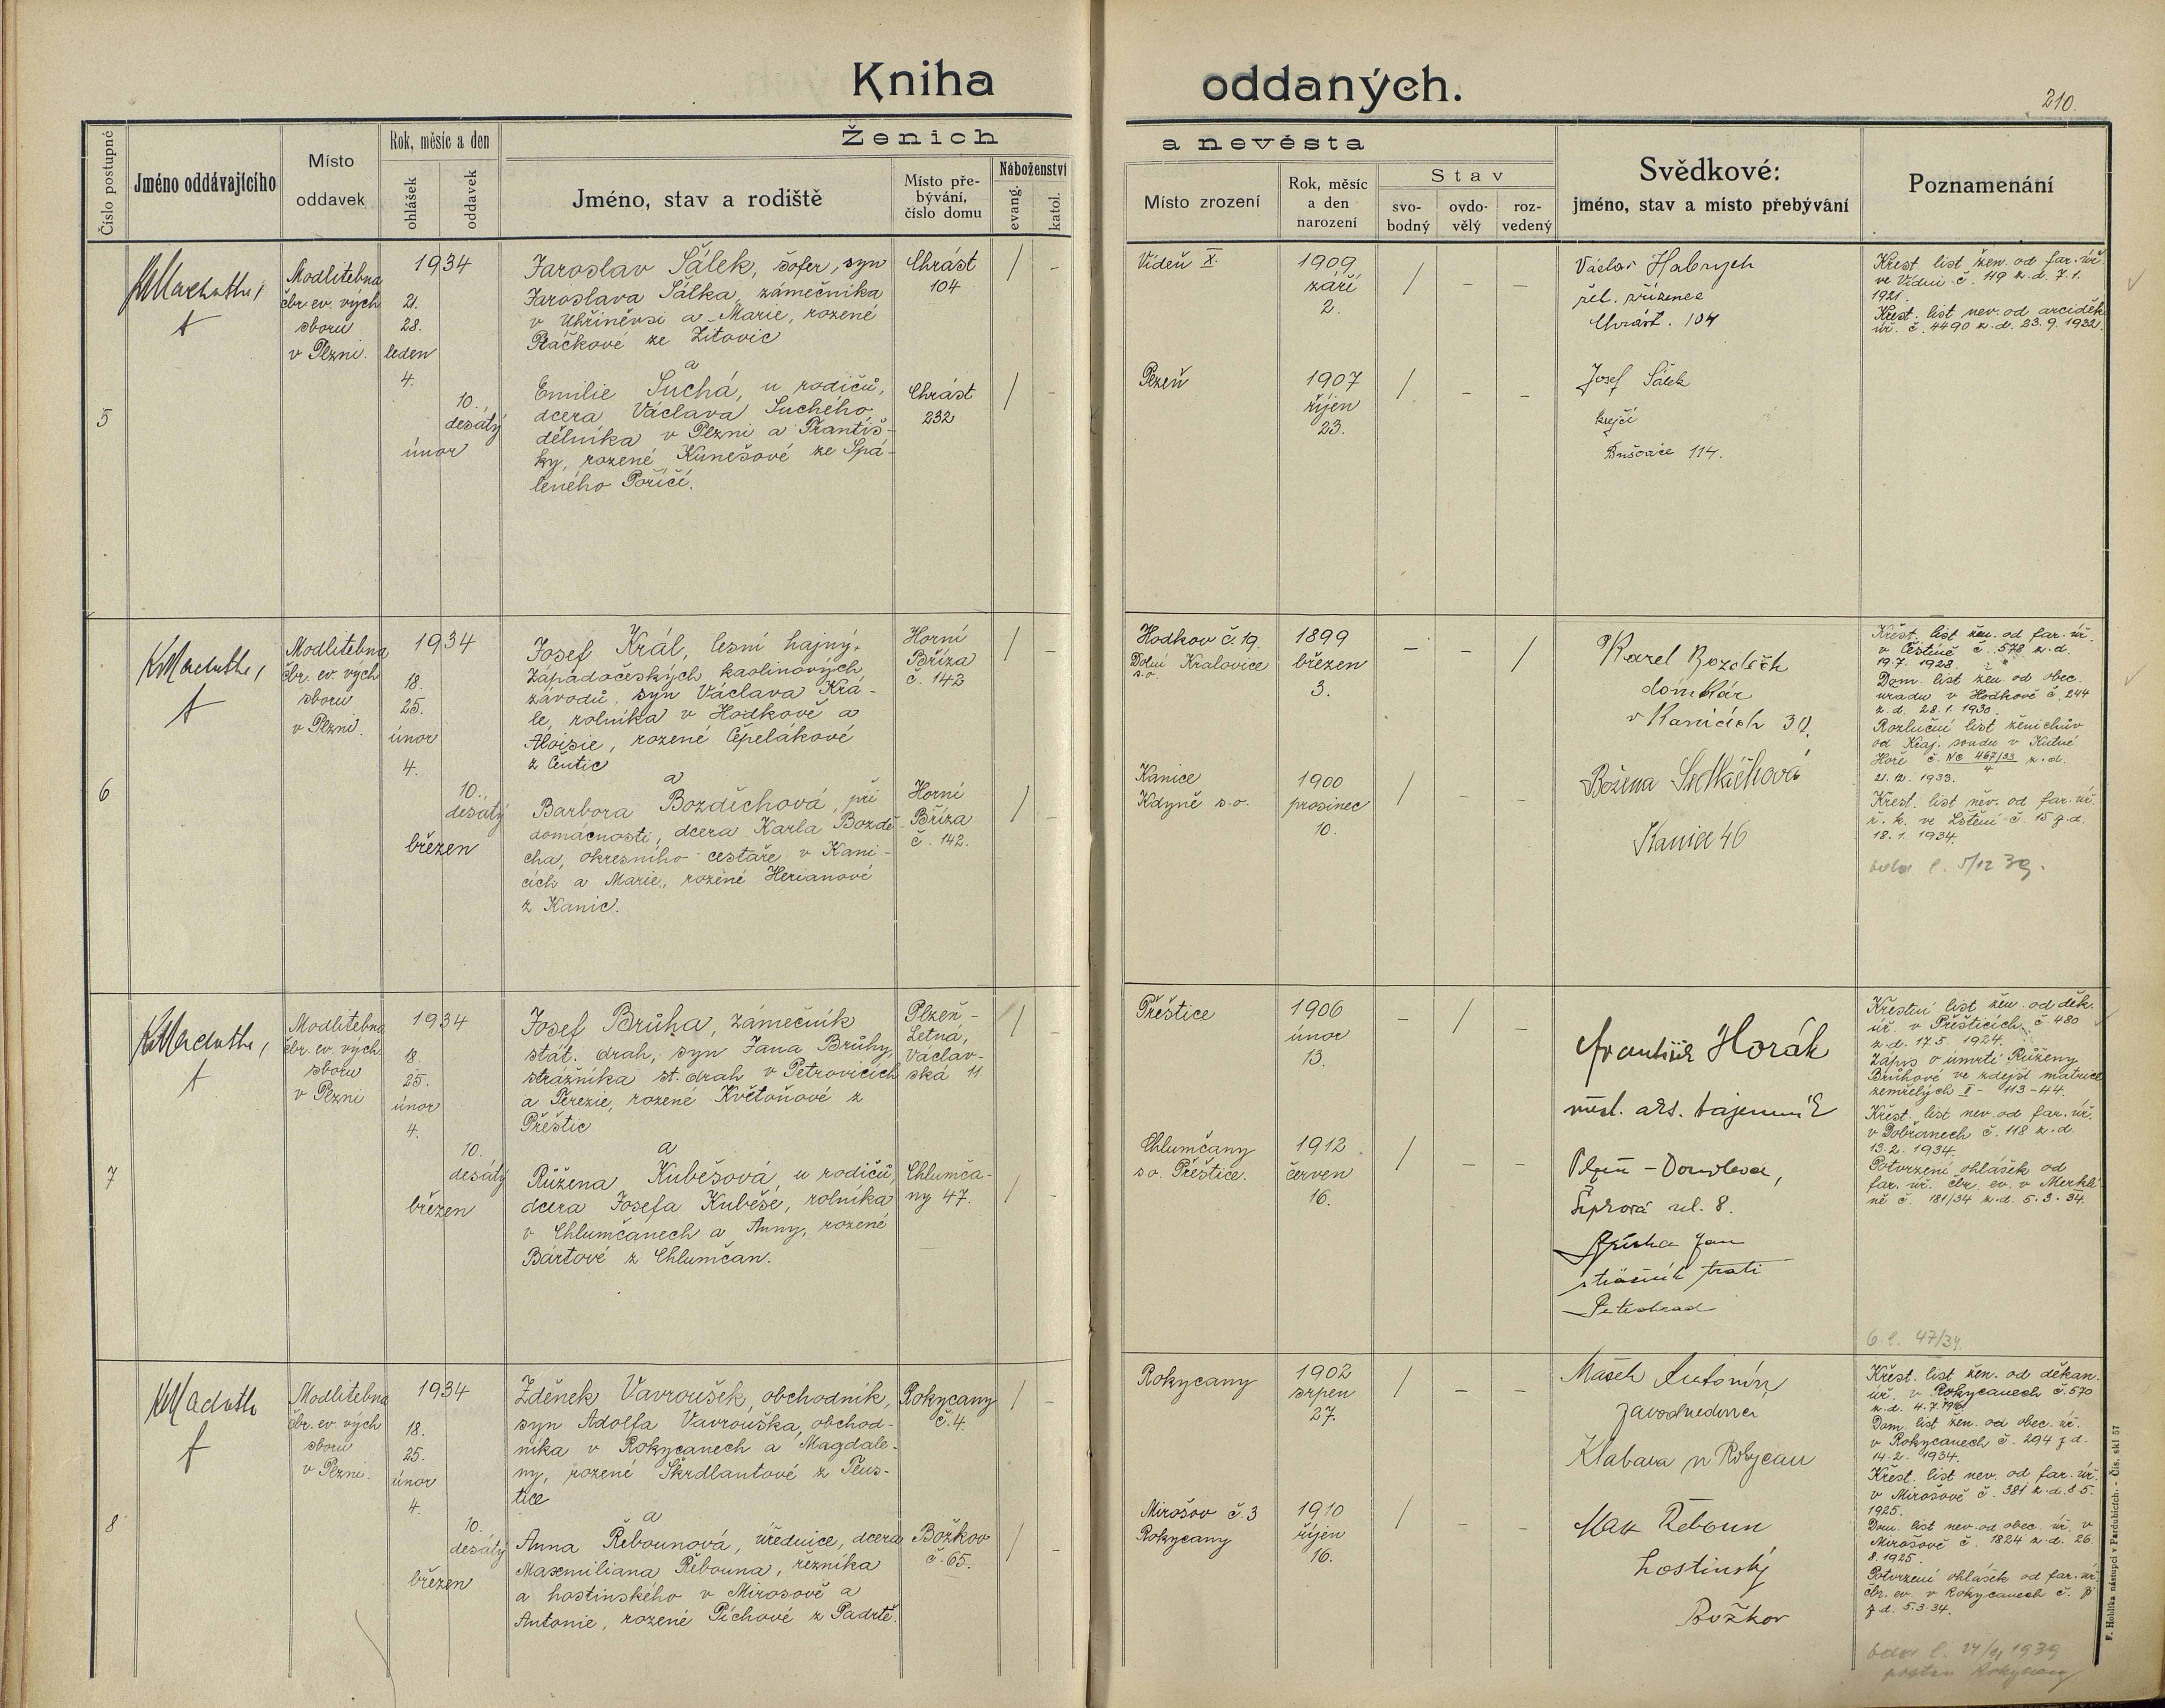 Kniha oddaných.
210.
Číslo postupné
Jméno oddávajícího
Místo
oddavek
Rok, měsíc a den
ohlášek
oddavek
Ženich
Jméno, stav a rodiště
Místo pře-
bývání,
číslo domu
Náboženství
evang.
katol.
a nevěsta
Místo zrození
Rok, měsíc
a den
narození
Stav
svo-
bodný
ovdo-
vělý
roz-
vedený
Svědkové:
jméno, stav a místo přebývání
Poznamenání
5
Modlitebna
čbr. ev. vých
sboru
v Plzni.
1934
21.
28.
leden
4.
10.
desátý
únor
Jaroslav Šálek, šofer, syn
Jaroslava Šálka, zámečníka
v Uhříněvsi a Marie, rozené
Ptáčkové ze Zitovic
a
Emilie Suchá, u rodičů,
dcera Václava Suchého
dělníka v Plzni a Františ-
ky, rozené Kunešové ze Spá-
leného Poříčí.
Chrást
104
Chrást
232
/ -
/ -
Vídeň X.
1909
září
2.
/ - -
Plzeň
1907
říjen
23.
/ - -
Václav Habrych
žel. zřízenec
Chrást. 104
Josef Šálek
krejčí
Bušovice 114.
Křest. list žen. od far. úř.
ve Vídni č. 49 z. d. 7. 1.
1921.
Křest. list nev. od arciděk.
úř. č. 4490 z. d. 23. 9. 1932.
6
Modlitebna
čbr. ev. vých
sboru
v Plzni.
1934
18.
25.
únor
4.
10.
desátý
březen
Josef Král, lesní hajný
Západočeských kaolinových
závodů, syn Václava Krá-
le, rolníka v Hodkově a
Aloisie, rozené Čepelákové
z Čentic
a
Barbora Bozděchová, při
domácnosti, dcera Karla Bozdě-
cha, okresního cestáře v Kani-
cích a Marie, rozené Herianové
z Kanic.
Horní
Bříza
č. 142
Horní
Bříza
č. 142.
/ -
/ -
Hodkov č. 19.
Dolní Kralovice
s. o.
1899
březen
3.
- - /
Kanice
Kdyně s. o.
1900
prosinec
10.
/ - -
Karel Bozděch
domkář
v Kanicích 30.
Božena Sedláčková
Kanice 46
Křest. list žen. od far. úř.
v Čestíně č. 578 z. d.
19. 7. 1928.
Dom. list žen. od obec.
úřadu v Hodkově č. 244
z. d. 28. 1. 1930.
Rozlučni list ženichův
od Kraj. soudu v Kutné
Hoře č. Nc 467/33 z. d.
4
21. 12. 1933.
Křest. list něv. od far. úř.
ř. k. ve Lštění č. 15 z. d.
18. 1. 1934.
5/12 39.
7
Modlitebna
čbr. ev. vých
sboru
v Plzni
1934
18.
25.
únor
4.
10.
desátý
březen
Josef Brůha, zámečník
stát. drah, syn Jana Brůhy,
strážníka st. drah v Petrovicích
a Terezie, rozené Květoňové z
Přeštic
a
Růžena Kubešová, u rodičů,
dcera Josefa Kubeše, rolníka
v Chlumčanech a Anny, rozené
Bártové z Chlumčan.
Plzeň -
Letná,
Václav-
ská 11.
Chlumča-
ny 47.
/ -
/ -
Přeštice
1906
únor
13.
- / -
Chlumčany
s. o. Přeštice.
1912
červen
16.
/ - -
František Horák
tajemník
Plzeň - Doudlevce,
Šípková ul. 8.
Brůha Jan
strážník trati
Křestní list žen. od děk.
úř. v Přešticích č 480
z. d. 17. 5. 1924.
Zápis o úmrtí Růženy
Brůhové ve zdejší matrice
zemřelých I - 113-44.
Křest. list nev. od far. úř.
v Dobřanech č. 118 z. d.
13. 2. 1934.
Potvrzení ohlášek od
far. úř. čbr. ev. v Merklí-
ně č. 181/34 z. d. 5. 3. 34.
6. l. 47/34.
8
Modlitebna
čbr. ev. vých
sboru
v Plzni.
1934
18.
25.
únor
4.
10.
desátý
březen
Zděnek Vavroušek, obchodník,
syn Adolfa Vavrouška, obchod-
níka v Rokycanech a Magdale-
ny, rozené Škrdlantové z Těus-
tice
a
Anna Řebounová, úřednice, dcera
Maxmiliana Řebouna, řezníka
a hostinského v Mirosově a
Antonie, rozené Píchové z Padrtě.
Rokycany
č. 4.
Božkov
č. 65.
/ -
/ -
Rokycany
1902
srpen
27.
/ - -
Mirošov č. 3
Rokycany
1910
říjen
16.
/ - -
Mašek Antonín
Klabava u Rokycan
Max Řeboun
hostinský
Božkov
Křest. list žen. od děkan.
úř. v Rokycanech č. 570
z. d. 4. 7. 1916.
Dom. list žen. od obec. úř.
v Rokycanech č. 294 z d.
14. 2. 1934.
Křest. list nev. od far. úř.
v Mirošově č. 381 z. d. 8. 5.
1925.
Dom. list nev. od obec. úř. v
Mirošově č. 1824 z. d. 26.
8. 1925.
Potvrzení ohlášek od far. úř.
čbr. ev. v Rokycanech č.
z d. 5. 3. 34.
1939
Rokycany
F. Hoblíka nástupci v Pardubicích. - Čís. skl 57